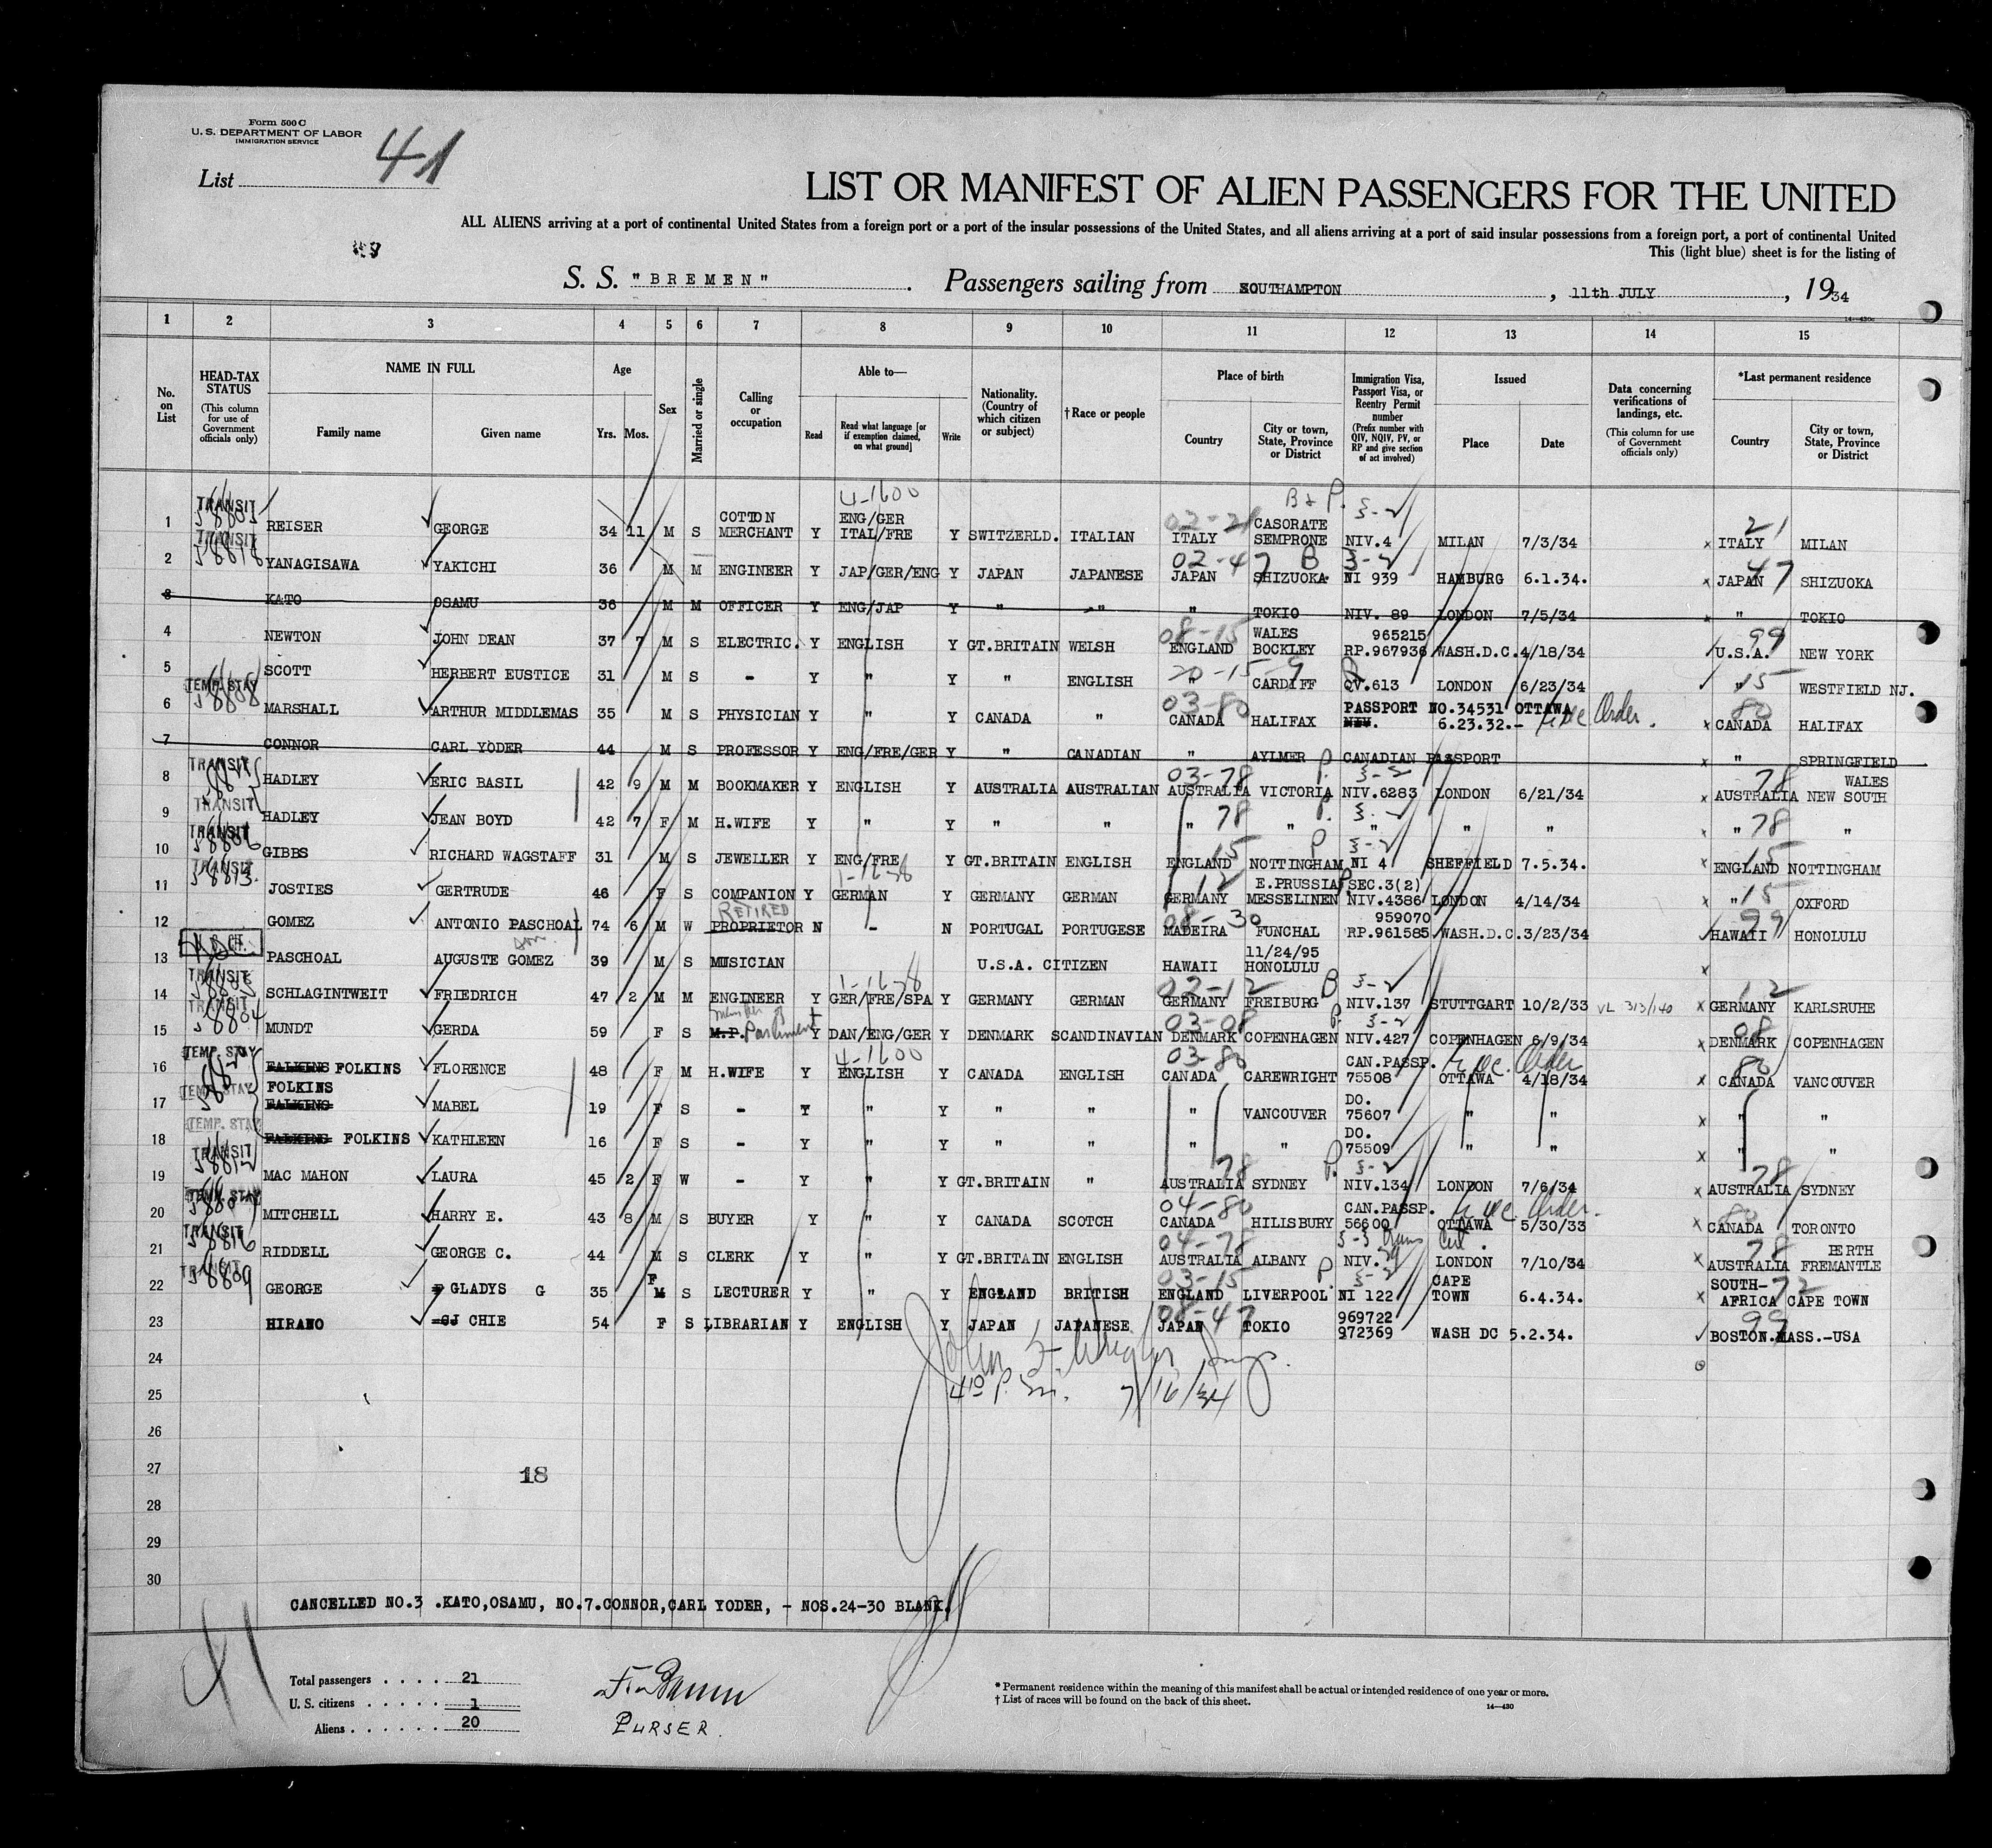 Form 500 C
U. S. DEPARTMENT OF LABOR
IMMIGRATION SERVICE
List 41
LIST OR MANIFEST OF ALIEN PASSENGERS FOR THE UNITED
ALL ALIENS arriving at a port of continental United States from a foreign port or a port of the insular possessions of the United States, and all aliens arriving at a port of said insular possessions from a foreign port, a port of continental United
This (light blue) sheet is for the listing of
S. S. "BREMEN". Passengers sailing from SOUTHAMPTON, 11th JULY, 1934
1 2 3 4 5 6 7 8 9 10 11 12 13 14 15
No. on List
HEAD-TAX STATUS (This column for use of Government officials only)
NAME IN FULL Family name Given name
Age Yrs. Mos.
Sex
Married or single
Calling or occupation
Able to— Read Read what language [or if exemption claimed, on what ground] Write
Nationality. (Country of which citizen or subject)
†Race or people
Place of birth Country City or town, State, Province or District
Immigration Visa, Passport Visa, or Reentry Permit number (Prefix number with QIV, NQIV, PV, or RP and give section of act involved)
Issued Place Date
Data concerning verifications of landings, etc. (This column for use of Government officials only)
*Last permanent residence Country City or town, State, Province or District
1 TRANSIT REISER GEORGE 34 11 M S COTTON MERCHANT Y ENG/GER ITAL/FRE Y SWITZERLD. ITALIAN ITALY CASORATE SEMPRONE NIV.4 MILAN 7/3/34 x ITALY MILAN
2 TRANSIT YANAGISAWA YAKICHI 36 M M ENGINEER Y JAP/GER/ENG Y JAPAN JAPANESE JAPAN SHIZUOKA NI 939 HAMBURG 6.1.34. x JAPAN SHIZUOKA
3 KATO OSAMU 36 M M OFFICER Y ENG/JAP Y " " " TOKIO NIV. 89 LONDON 7/5/34 x " TOKIO
4 NEWTON JOHN DEAN 37 7 M S ELECTRIC. Y ENGLISH Y GT.BRITAIN WELSH ENGLAND WALES BOCKLEY 965215 RP.967936 WASH.D.C. 4/18/34 U.S.A. NEW YORK
5 SCOTT HERBERT EUSTICE 31 M S - Y " Y " ENGLISH " CARDIFF QV.613 LONDON 6/23/34 " WESTFIELD NJ.
6 TEMP. STAY MARSHALL ARTHUR MIDDLEMAS 35 M S PHYSICIAN Y " Y CANADA " CANADA HALIFAX PASSPORT NO.34531 OTTAWA NIV. 6.23.32.- Exec. Order. x CANADA HALIFAX
7 CONNOR CARL YODER 44 M S PROFESSOR Y ENG/FRE/GER Y " CANADIAN " AYLMER CANADIAN PASSPORT x " SPRINGFIELD
8 TRANSIT HADLEY ERIC BASIL 42 9 M M BOOKMAKER Y ENGLISH Y AUSTRALIA AUSTRALIAN AUSTRALIA VICTORIA NIV.6283 LONDON 6/21/34 x AUSTRALIA NEW SOUTH WALES
9 TRANSIT HADLEY JEAN BOYD 42 7 F M H.WIFE Y " Y " " " " " " " x " "
10 TRANSIT GIBBS RICHARD WAGSTAFF 31 M S JEWELLER Y ENG/FRE Y GT.BRITAIN ENGLISH ENGLAND NOTTINGHAM NI 4 SHEFFIELD 7.5.34. x ENGLAND NOTTINGHAM
11 TRANSIT JOSTIES GERTRUDE 46 F S COMPANION Y GERMAN Y GERMANY GERMAN GERMANY E.PRUSSIA MESSELINEN SEC.3(2) NIV.4386 LONDON 4/14/34 x " OXFORD
12 GOMEZ ANTONIO PASCHOAL 74 6 M W RETIRED PROPRIETOR N - N PORTUGAL PORTUGESE MADEIRA FUNCHAL 959070 RP.961585 WASH.D.C. 3/23/34 HAWAII HONOLULU
13 PASCHOAL AUGUSTE GOMEZ 39 M S MUSICIAN U.S.A. CITIZEN HAWAII 11/24/95 HONOLULU x
14 TRANSIT SCHLAGINTWEIT FRIEDRICH 47 2 M M ENGINEER Y GER/FRE/SPA Y GERMANY GERMAN GERMANY FREIBURG NIV.137 STUTTGART 10/2/33 VL 313/140 x GERMANY KARLSRUHE
15 TRANSIT MUNDT GERDA 59 F S M.P. Member of Parliament Y DAN/ENG/GER Y DENMARK SCANDINAVIAN DENMARK COPENHAGEN NIV.427 COPENHAGEN 6/9/34 x DENMARK COPENHAGEN
16 TEMP. STAY FALKINS FOLKINS FLORENCE 48 F M H.WIFE Y ENGLISH Y CANADA ENGLISH CANADA CAREWRIGHT CAN.PASSP. 75508 OTTAWA 4/18/34 Exec. Order x CANADA VANCOUVER
17 TEMP. STAY FOLKINS FALKINS MABEL 19 F S - Y " Y " " " VANCOUVER DO. 75607 " " x " "
18 TEMP. STAY FALKINS FOLKINS KATHLEEN 16 F S - Y " Y " " " " DO. 75509 " " x " "
19 TRANSIT MAC MAHON LAURA 45 2 F W - Y " Y GT.BRITAIN " AUSTRALIA SYDNEY NIV.134 LONDON 7/6/34 x AUSTRALIA SYDNEY
20 TEMP. STAY MITCHELL HARRY E. 43 8 M S BUYER Y " Y CANADA SCOTCH CANADA HILLSBURY CAN.PASSP. 56600 OTTAWA 5/30/33 Exec. Order. x CANADA TORONTO
21 TRANSIT RIDDELL GEORGE C. 44 M S CLERK Y " Y GT.BRITAIN ENGLISH AUSTRALIA ALBANY NIV. LONDON 7/10/34 x AUSTRALIA PERTH FREMANTLE
22 TRANSIT GEORGE GLADYS G 35 F M S LECTURER Y " Y ENGLAND BRITISH ENGLAND LIVERPOOL NI 122 CAPE TOWN 6.4.34. x SOUTH-AFRICA CAPE TOWN
23 HIRANO CHIE 54 F S LIBRARIAN Y ENGLISH Y JAPAN JAPANESE JAPAN TOKIO 969722 972369 WASH DC 5.2.34. BOSTON.MASS.-USA
24
25 7/16/34
26
27 18
28
29
30
CANCELLED NO.3 .KATO,OSAMU, NO.7.CONNOR,CARL YODER, - NOS.24-30 BLANK.
41
Total passengers . . . . . 21
U. S. citizens . . . . . 1
Aliens . . . . . . 20
PURSER.
* Permanent residence within the meaning of this manifest shall be actual or intended residence of one year or more.
† List of races will be found on the back of this sheet.
14—430